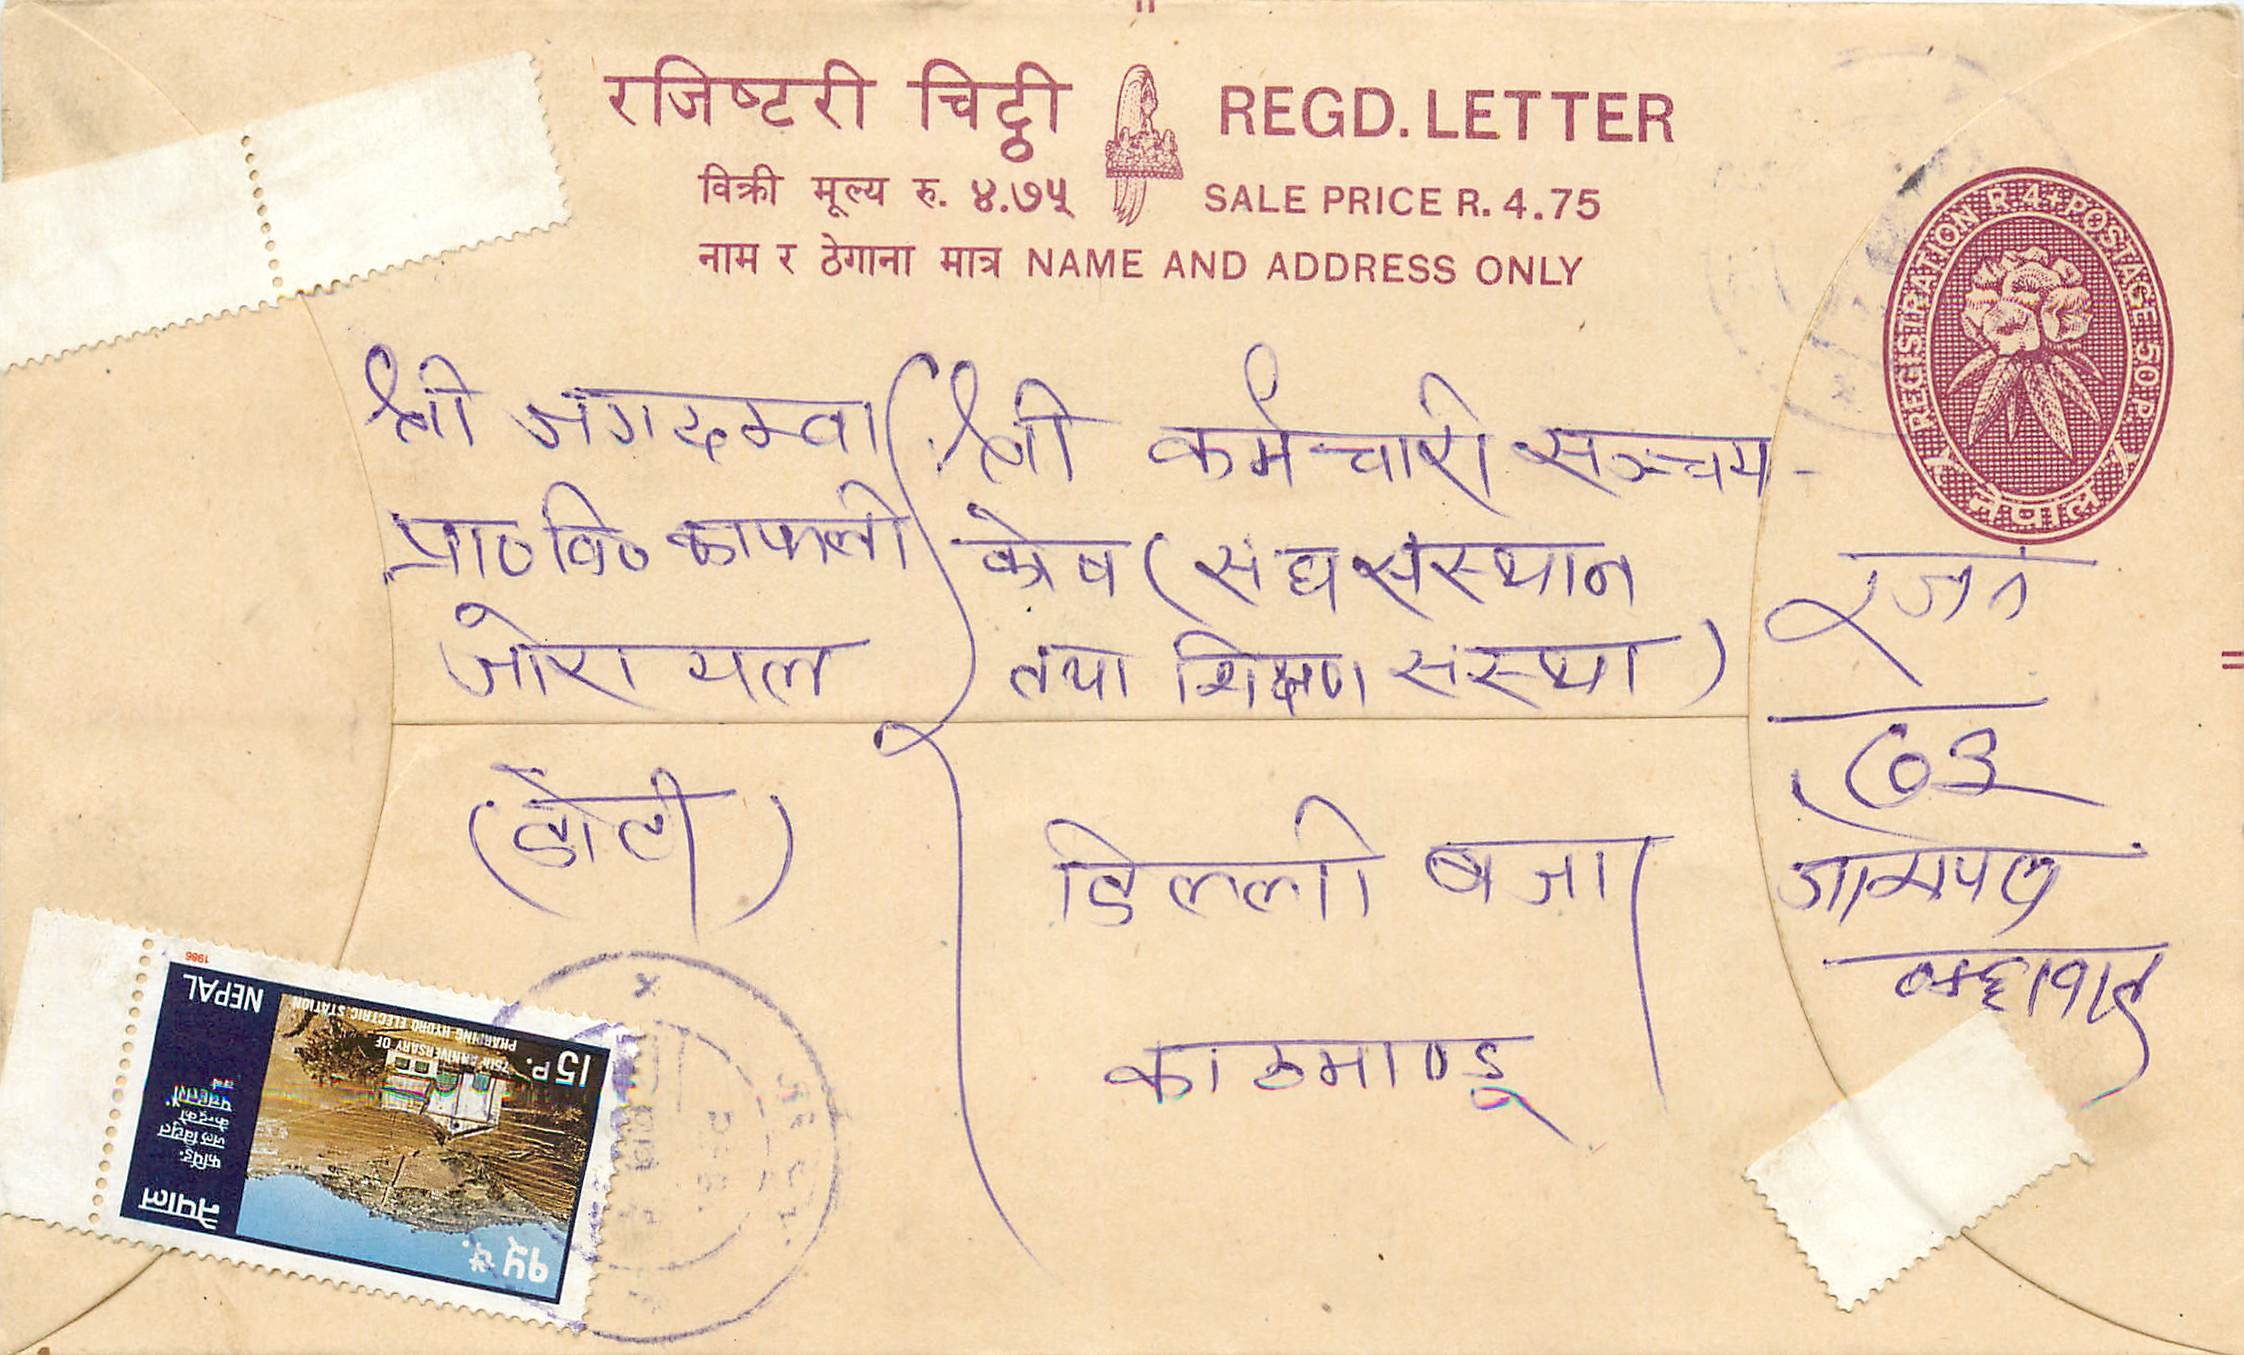 रजिष्टरी चिट्ठी REGD. LETTER
विक्री मूल्य रु. ४.७५ SALE PRICE R. 4.75
नाम र ठेगाना मात्र NAME AND ADDRESS ONLY
REGISTRATION R.4+POSTAGE 50 P.
नेपाल
श्री जगदम्वा
प्रा०वि० काफली
जोरायल
(डोटी)
श्री कर्मचारी सञ्चय-
कोष (संघ संस्थान
तथा शिक्षण संस्था)
डिल्ली बजार
काठमाण्डू
रजत
८०३
1986
NEPAL
75th ANNIVERSARY OF
PHARPING HYDRO ELECTRIC STATION
15 P.
फर्पिङ.
जल विद्युत
केन्द्रको
पचहत्तरौं
वर्ष
नेपाल
१५ पै.